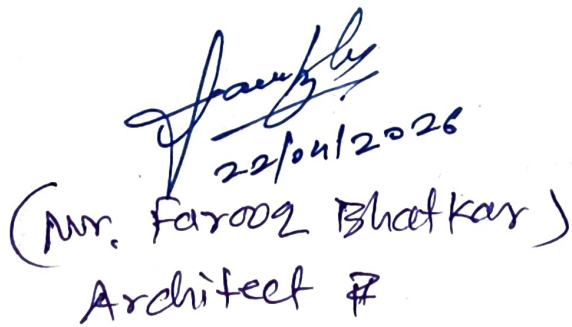 22/04/2026
(Mr. Farooq Bhatkar)
Architect